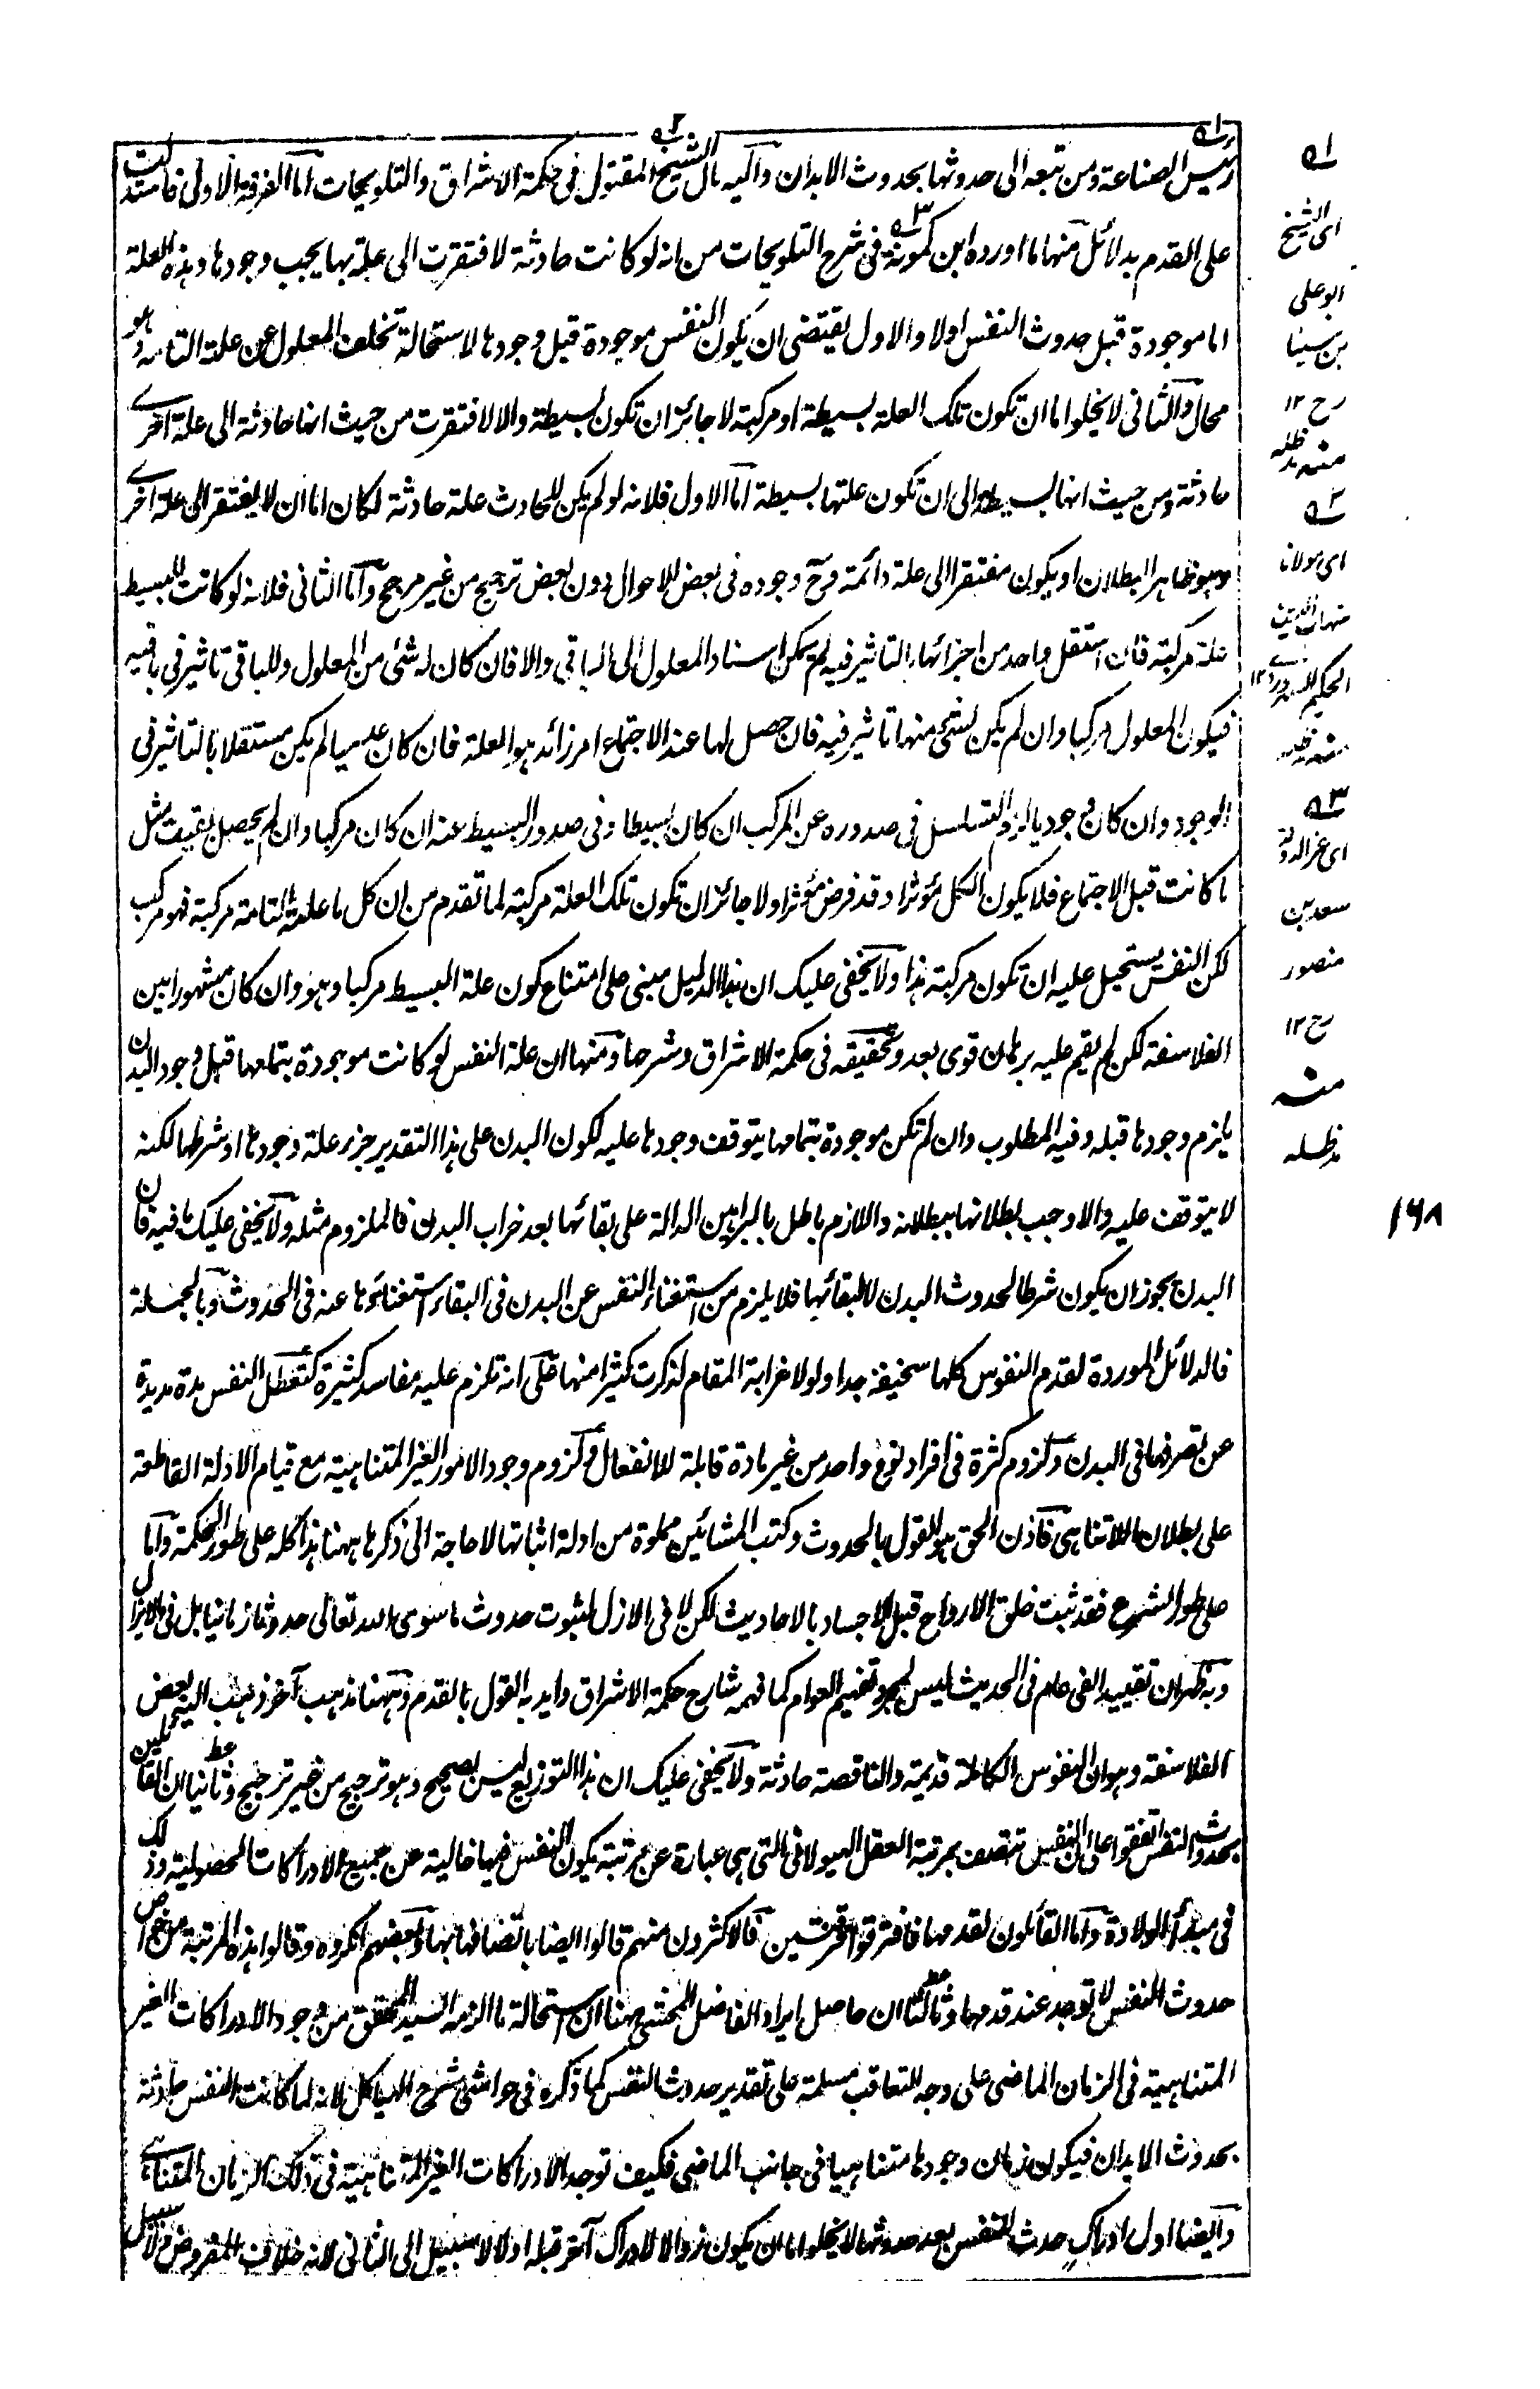 رئيس الصناعة ومن تبعه الى حدوثها بحدوث الابدان واليه مال الشيخ المقتول فى حكمة الاشراق والتلويحات اما الفرقة الاولى فاستدلت
على القدم بدلائل منها ما اورده ابن كمونة فى شرح التلويحات من انه لو كانت حادثة لافتقرت الى علة بها يجب وجودها وهذه العلة
اما موجودة قبل حدوث النفس اولا والاول يقتضى ان يكون النفس موجودة قبل وجودها لاستحالة تخلف المعلول عن علته التامة وهو
محال والثانى لا يخلو اما ان تكون تلك العلة بسيطة او مركبة لا جائز ان تكون بسيطة والا لافتقرت من حيث انها حادثة الى علة اخرے
حادثة ومن حيث انها بسيطة الى ان تكون علتها بسيطة اما الاول فلانه لو لم يكن للحادث علة حادثة لكان اما ان لا يفتقر الى علة اخرے
وهو ظاهر البطلان او يكون مفتقرا الى علة دائمة وح وجوده فى بعض الاحوال دون بعض ترجيح من غير مرجح واما الثانى فلانه لو كانت للبسيط
علة مركبة فان استقل واحد من اجزائها بالتاثير فيه لم يمكن اسناد المعلول الى الباقى والا فان كان له شئ من المعلول وللباقى تاثير فى باقيه
فيكون المعلول مركبا وان لم يكن لشئ منها تاثير فيه فان حصل لها عند الاجتماع امر زائد هو العلة فان كان عدميا لم يكن مستقلا بالتاثير فى
الوجود وان كان وجوديا لزم التسلسل فى صدوره عن المركب ان كان بسيطا وفى صدور البسيط عنه ان كان مركبا وان لم يحصل بقيت مثل
ما كانت قبل الاجتماع فلا يكون الكل مؤثرا وقد فرض مؤثرا ولا جائز ان تكون تلك العلة مركبة لما تقدم من ان كل ما علته التامة مركبة فهو مركب
لكن النفس يستحيل عليه ان تكون مركبة هذا ولا يخفى عليك ان هذا الدليل مبنى على امتناع كون علة البسيط مركبا وهو وان كان مشهورا بين
الفلاسفة لكن لم يقم عليه برهان قوى بعد وتحقيقه فى حكمة الاشراق وشرحها ومنها ان علة النفس لو كانت موجودة بتمامها قبل وجود البدن
يلزم وجودها قبله وفيه المطلوب وان لم تكن موجودة بتمامها يتوقف وجودها عليه لكون البدن على هذا التقدير جزء علة وجودها او شرطها لكنه
لا يتوقف عليه والا وجب بطلانها ببطلانه واللازم باطل بالبراهين الدالة على بقائها بعد خراب البدن فالملزوم مثله ولا يخفى عليك ما فيه فان
البدن يجوز ان يكون شرطا لحدوث البدن لا لبقائها فلا يلزم من استغناء النفس عن البدن فى البقاء استغناؤها عنه فى الحدوث وبالجملة
فالدلائل الموردة لقدم النفوس كلها سخيفة جدا ولولا غرابة المقام لذكرت كثيرا منها على انه تلزم عليه مفاسد كثيرة كتعطل النفس مدة مديدة
عن تصرفها فى البدن ولزوم كثرة فى افراد نوع واحد من غير مادة قابلة للانفعال ولزوم وجود الامور الغير المتناهية مع قيام الادلة القاطعة
على بطلان اللاتناهى فاذن الحق هو القول بالحدوث وكتب المشائين مملوة من ادلة اثباتها لا حاجة الى ذكرها ههنا هذا كله على طور الحكمة واما
على طور الشرع فقد ثبت خلق الارواح قبل الاجساد بالاحاديث لكن لا فى الازل لثبوت حدوث ما سوى الله تعالى حدوثا زمانيا بل فى لايزال
وبه ظهر ان تقييد الفى عام فى الحديث ليس لمجرد تفهيم العوام كما فهمه شارح حكمة الاشراق وايد به القول بالقدم وههنا مذهب آخر ذهب اليه بعض
الفلاسفة وهو ان النفوس الكاملة قديمة والناقصة حادثة ولا يخفى عليك ان هذا التوزيع ليس بصحيح وهو ترجيح من غير ترجيح وثانيا ان القائلين
بحدوث النفس اتفقوا على ان النفس تتصف بمرتبة العقل الهيولانى التى هى عبارة عن مرتبة يكون النفس فيها خالية عن جميع الادراكات الحصولية وذلك
فى مبدأ الولادة واما القائلون بقدمها فافترقوا فرقتين فالاكثرون منهم قالوا ايضا باتصافها بها وبعضهم انكروه وقالوا هذه المرتبة من خواص
حدوث النفس لا توجد عند قدمها وثالثا ان حاصل ايراد الفاضل المحشى ههنا ان استحالة ما الزمه السيد المحقق من وجود الادراكات الغير
المتناهية فى الزمان الماضى على وجه التعاقب مسلمة على تقدير حدوث النفس كما ذكره فى حواشى شرح الهياكل لانه لما كانت النفس حادثة
بحدوث الابدان فيكون زمان وجودها متناهيا فى جانب الماضى فكيف توجد الادراكات الغير المتناهية فى ذلك الزمان المتناهے
وايضا اول ادراك حدث للنفس بعد حدوثها لا يخلو اما ان يكون زوالا لادراك آخر قبله اولا لا سبيل الى الثانى لانه خلاف المفروض ولا سبيل
ا؎
اى الشيخ
ابو على
بن سينا
رح ١٢
منه مد ظله
٢؎
اى مولانا
شهاب الدين
الحكيم السهروردے ١٢
منه مد ظله
٣؎
اى عز الدولة
سعد بن
منصور
رح ١٢
منه
مد ظله
١٦٨